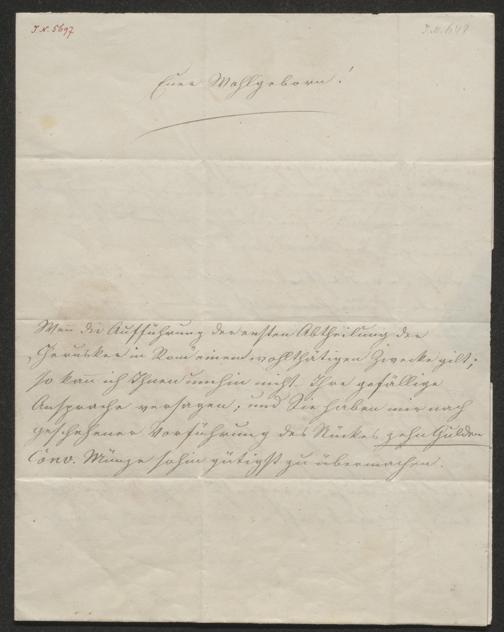 J.N. 5697
Euer Wohlgeborn!
Wenn die Aufführung der ersten Abtheilung der
„Cherusker in Rom" einem wohlthätigen Zwecke gilt;
so kann ich Ihnen nicht Ihre gefällige
Ansprache versagen, und Sie haben mir nach
geschehener Vorführung des Stückes zehn Gulden
Conv. Münze sohin gütigst zu übermachen.